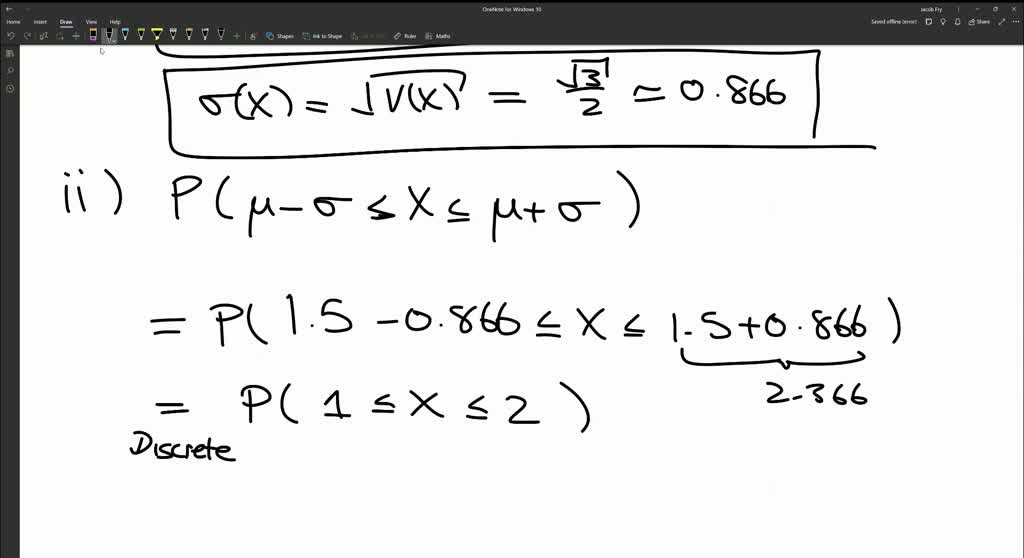 OneNote for Windows 10
Jacob Fry
Home Insert Draw View Help
Saved offline (error) Share
Shapes Ink to Shape Ruler Maths
σ(X) = √V(X) = √3/2 ≃ 0.866
ii) P(μ-σ ≤ X ≤ μ+σ)
= P(1.5 -0.866 ≤ X ≤ 1.5+0.866)
2.366
= P(1 ≤ X ≤ 2)
Discrete